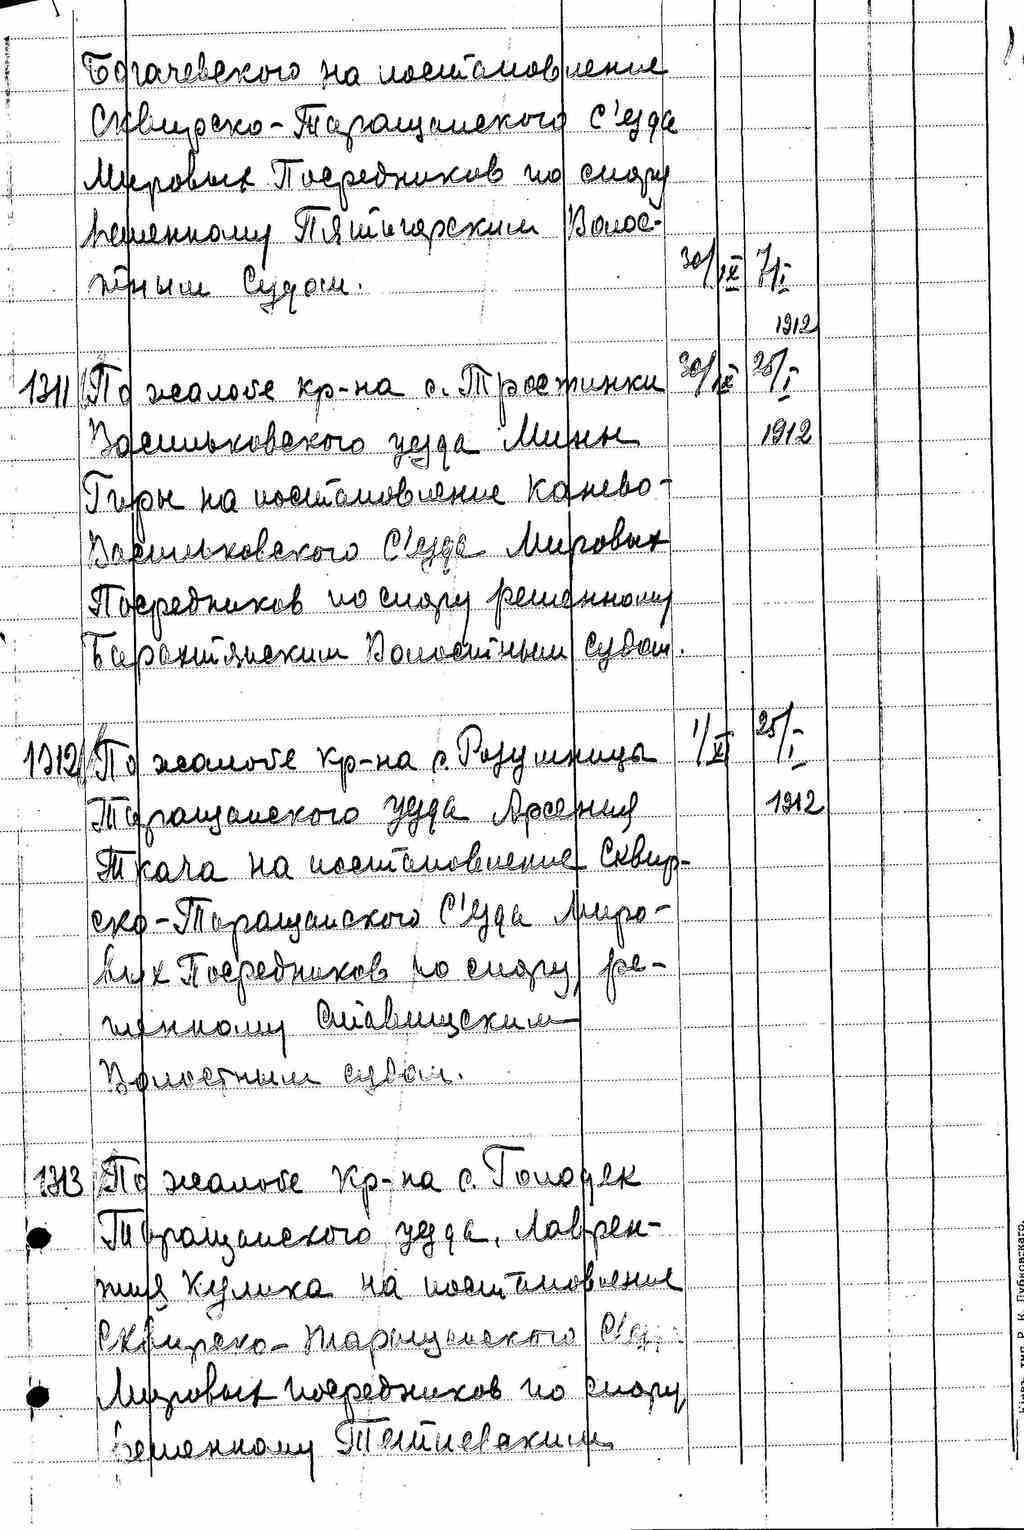 Богачевского на постановление
Сквирско-Таращанского С'езда
Мировых Посредников по спору
решенному Пятигорским Волос-
тным Судом. 30/IX 7/I
1912
1311 По жалобе кр-на с. Тростинки 30/IX 25/I
Васильковского уезда Мины 1912
Гиры на постановление Канево-
Васильковского С'езда Мировых
Посредников по спору решенному
Барахтянским Волостным Судом.
1312 По жалобе кр-на с. Розумницы 1/XI 25/I
Таращанского уезда Арсения 1912
Ткача на постановление Сквир-
ско-Таращанского С'езда Миро-
вых Посредников по спору, ре-
шенному Ставищским
Волостным судом.
1313 По жалобе кр-на с. Голодек
Таращанского уезда, Лаврен-
тия Кулика на постановление
Сквирско-Таращанского
Мировых посредников по спору,
решенному Тетиевским